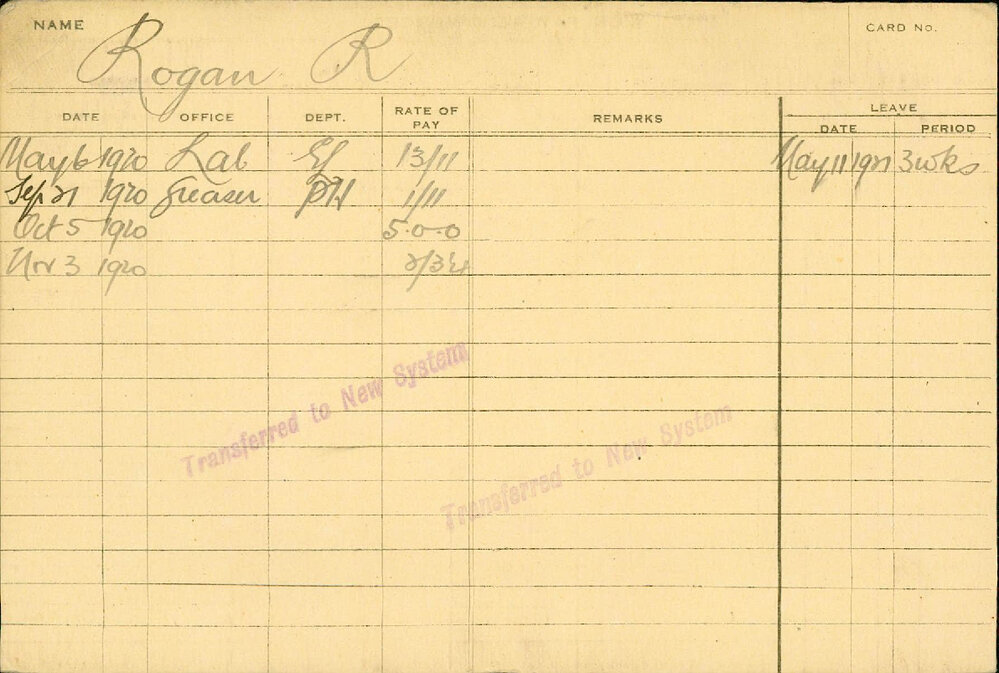 NAME Rogan R CARD No.
DATE OFFICE DEPT. RATE OF PAY REMARKS LEAVE
DATE PERIOD
May 6 1920 Lab EL 13/11 May 11 1921 3 wks
Sep 21 1920 Greaser PH 1/11
Oct 5 1920 5-0-0
Nov 3 1920
Transferred to New System
Transferred to New System